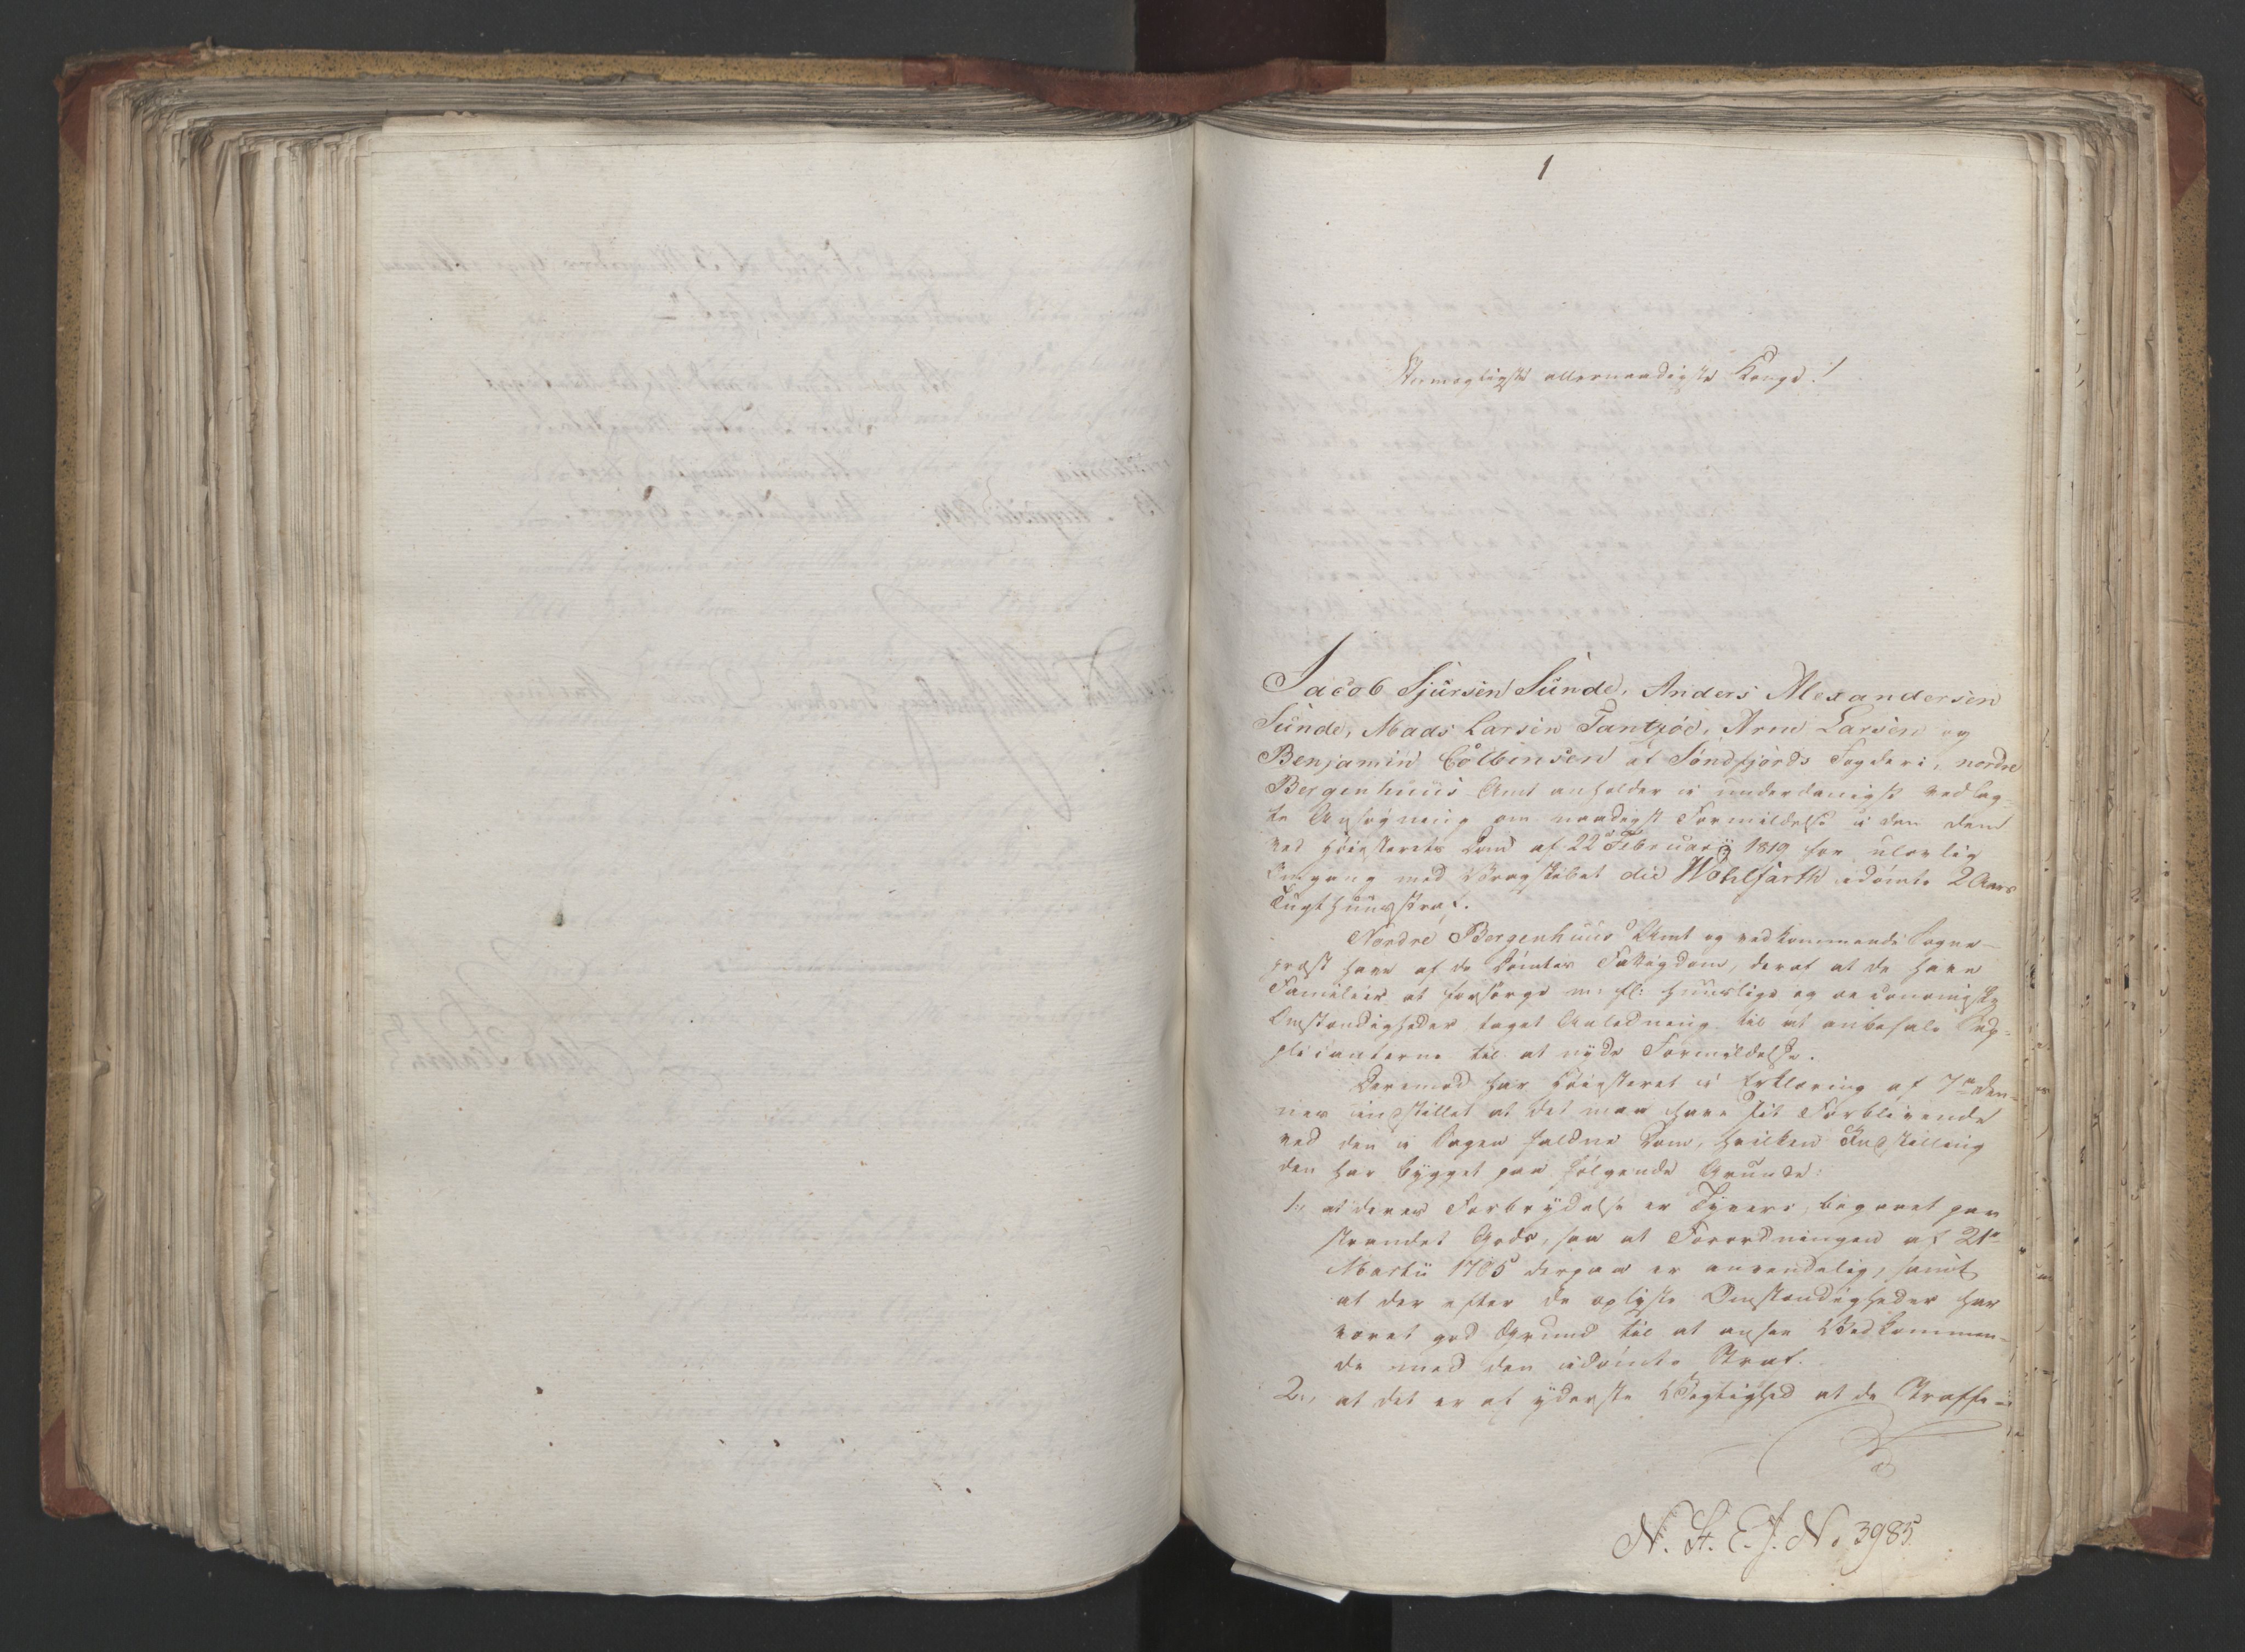 1
Stormægtigste allernaadigste Konge!
Jacob Sjursen Sunde, Anders Alexandersen
Sunde, Mads Larsen Arne Larsen og
Benjamin Colbensen af Søndfjords Fogderi, nordre
Bergenhuus Amt anholder i underdanigst vedlag-
te Ansøgning om naadigst Formildelse i den dem
ved Høiesterets Dom af 22de Februarii 1819 for ulovlig
Omgang med Vragskibet die Wohlfarth idømte 2 Aars
Tugthuusstraf.
Nordre Bergenhuus Amt og vedkommende Sogne-
præst have af de Dømtes Fattigdom, deraf at de have
Familier at forsørge m: fl: huuslige og oeconomiske
Omstændigheder taget Anledning til at anbefale Sup-
plicanterne til at nyde Formildelse.
Derimod har Høiesteret i Erklæring af 7de den-
nes indstillet at det maa have sit Forblivende
ved den i Sagen faldne Dom, hvilken Indstilling
den har bygget paa følgende Grunde:
1., at deres Forbrydelse er Tyveri, begaaet paa
strandet Gods, saa at Forordningen af 21de
Martii 1705 derpaa er anvendelig, samt
at der efter de oplyste Omstændigheder har
været god Grund til at ansee Vedkommen-
de med den idømte Straf.
2., at det er af yderste Vigtighed at de Straffe-
N. St. E. J. No 3985.